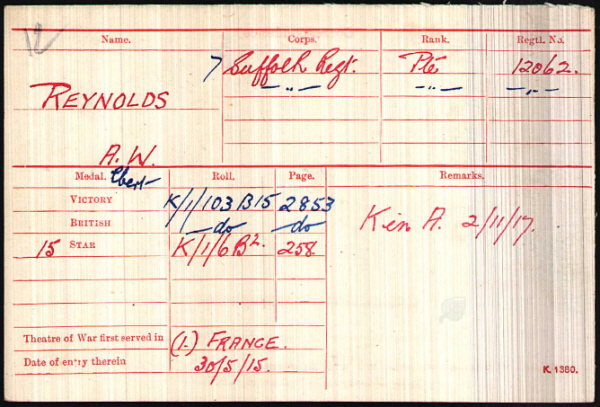 12
Name. Corps. Rank. Regtl. No.
REYNOLDS 7 Suffolk Regt. Pte. 12062.
— „ — — „ — — „ —
A. W.
Medal. Roll. Page. Remarks.
VICTORY K/1/103 B15 2853
BRITISH —do —do
15 STAR K/1/6 B2. 258.
Kin A. 2/11/17.
Theatre of War first served in (1.) FRANCE.
Date of entry therein 30/5/15.
K. 1380.